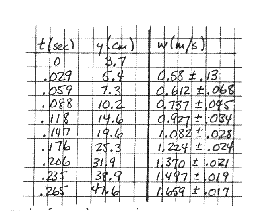 t(sec) y(cm) w(m/s)
0 3.7
.029 5.4 0.58 ± .13
.059 7.3 0.612 ± .068
.088 10.2 0.737 ± .045
.118 14.6 0.927 ± .034
.147 19.6 1.082 ± .028
.176 25.3 1.224 ± .024
.206 31.9 1.370 ± .021
.235 38.9 1.497 ± .019
.265 47.6 1.659 ± .017